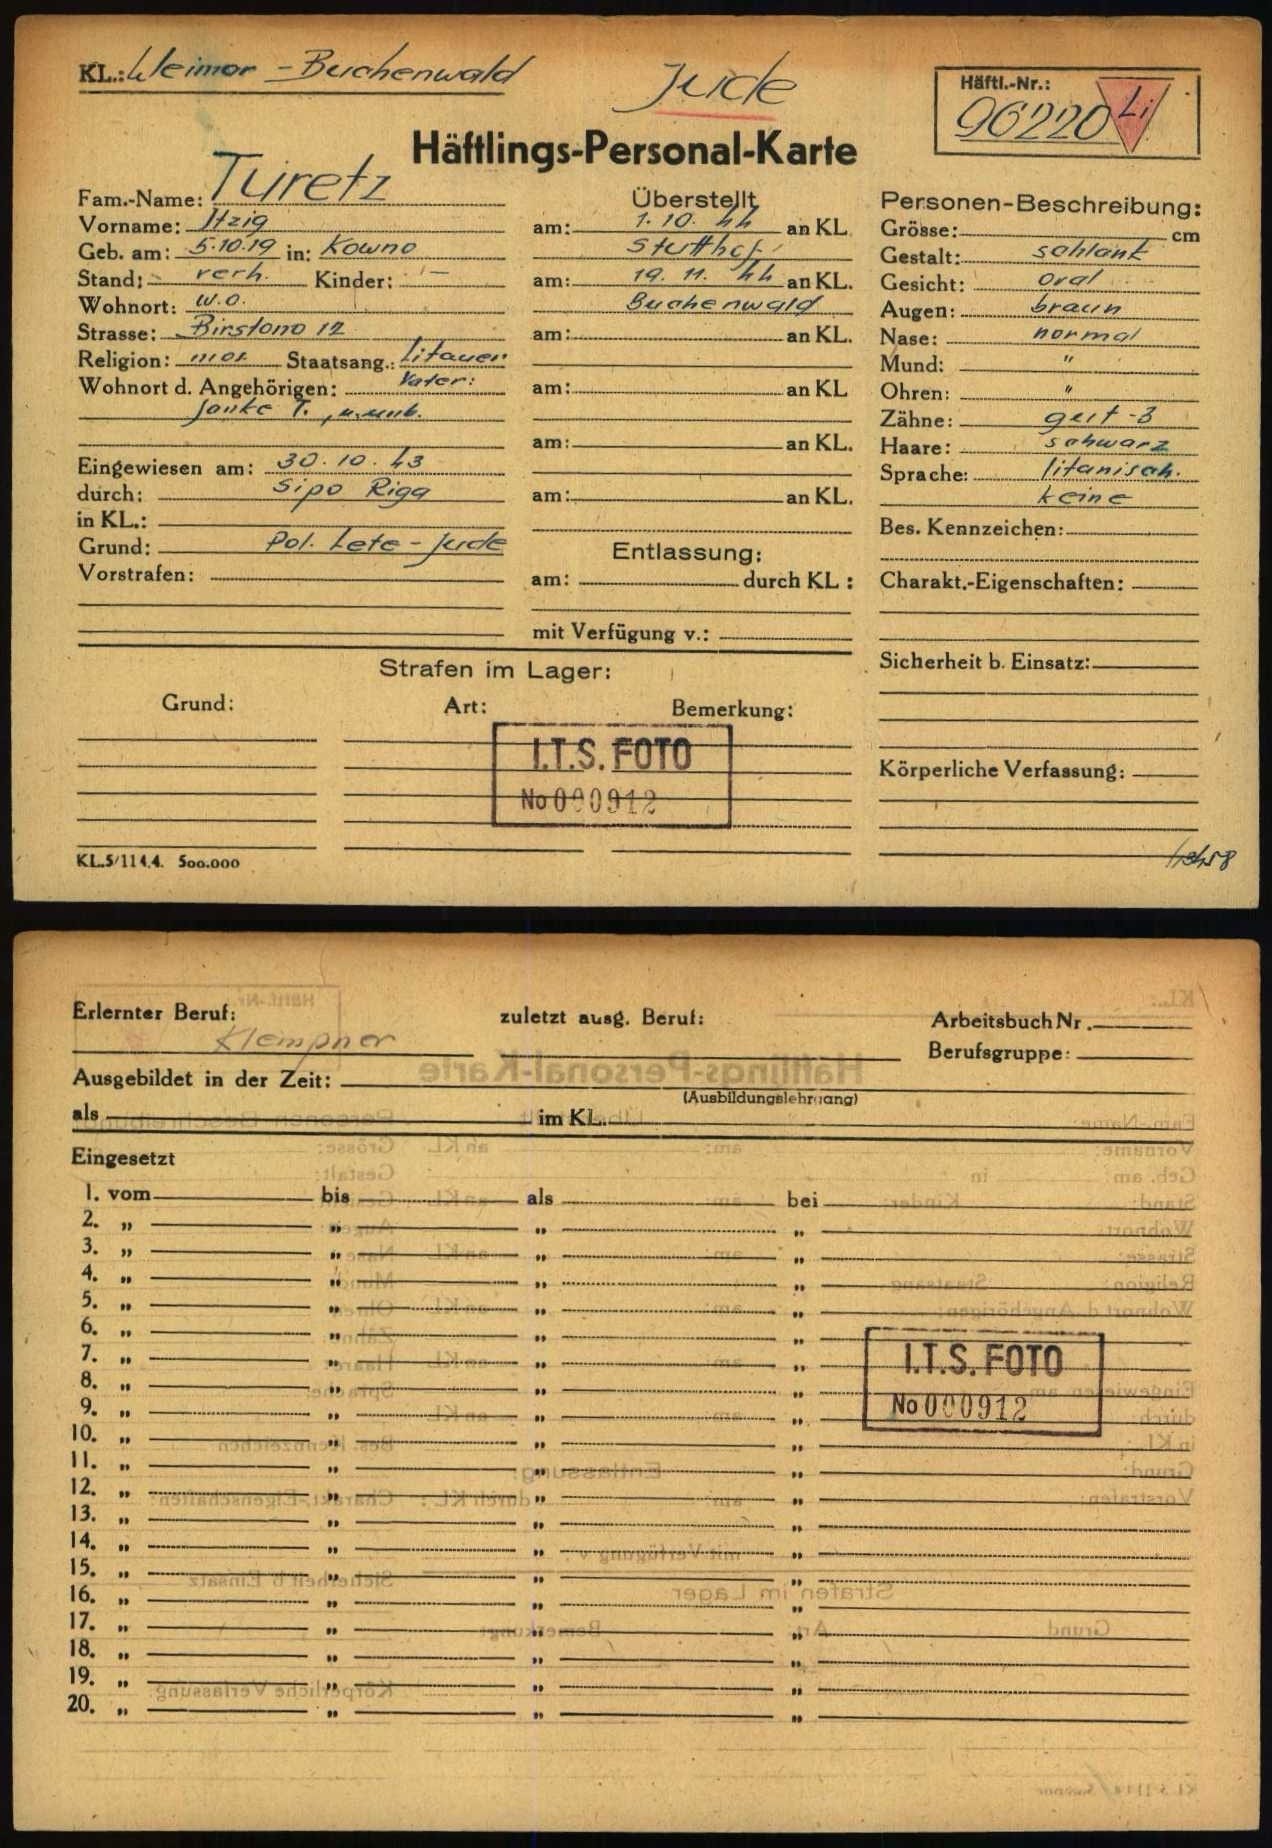 KL.: Weimar - Buchenwald
Jude
Häftl.-Nr.:
96220 Li
Häftlings-Personal-Karte
Fam.-Name: Turetz
Vorname: Itzig
Geb. am: 5.10.19 in: Kowno
Stand: verh. Kinder: —
Wohnort: w.o.
Strasse: Birstono 12
Religion: mos. Staatsang.: Litauer
Wohnort d. Angehörigen: Vater:
Janke T., u.unb.
Eingewiesen am: 30.10.43
durch: Sipo Riga
in KL.:
Grund: Pol. Lete - Jude
Vorstrafen:
Überstellt
am: 1.10.44 an KL.
Stutthof
am: 19.11.44 an KL.
Buchenwald
am: an KL.
am: an KL
am: an KL.
am: an KL.
Entlassung:
am: durch KL :
mit Verfügung v.:
Personen-Beschreibung:
Grösse: cm
Gestalt: schlank
Gesicht: oval
Augen: braun
Nase: normal
Mund: "
Ohren: "
Zähne: gut -3
Haare: schwarz
Sprache: litauisch.
keine
Bes. Kennzeichen:
Charakt.-Eigenschaften:
Sicherheit b. Einsatz:
Körperliche Verfassung:
Strafen im Lager:
Grund: Art: Bemerkung:
I.T.S. FOTO
No 000912
KL.5/11 4.4. 500.000
Erlernter Beruf: zuletzt ausg. Beruf: Arbeitsbuch Nr.
Klempner
Berufsgruppe:
Ausgebildet in der Zeit:
(Ausbildungslehrgang)
als im KL.
Eingesetzt
1. vom bis als bei
2. „ „ „ „
3. „ „ „ „
4. „ „ „ „
5. „ „ „ „
6. „ „ „ „
7. „ „ „ „
8. „ „ „ „
9. „ „ „ „
10. „ „ „ „
11. „ „ „ „
12. „ „ „ „
13. „ „ „ „
14. „ „ „ „
15. „ „ „ „
16. „ „ „ „
17. „ „ „ „
18. „ „ „ „
19. „ „ „ „
20. „ „ „ „
I.T.S. FOTO
No 000912